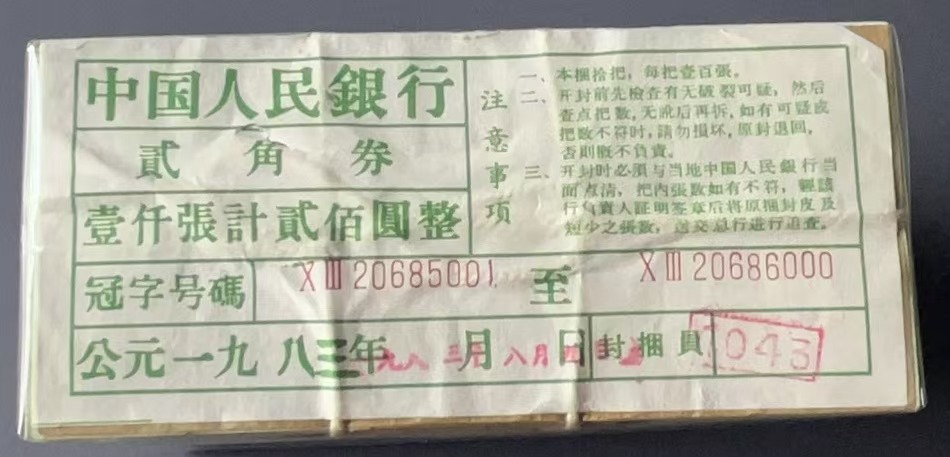 中国人民銀行
貳角券
壹仟張計貳佰圓整
注意事項
一、本捆拾把，每把壹百張。
二、开封前先檢查有无破裂可疑，然后
查点把数，无訛后再拆，如有可疑或
把数不符时，請勿損坏，原封退回，
否則概不負責。
三、开封时必須与当地中国人民銀行当
面点清，把內張数如有不符，經該
行負責人証明签章后将原捆封皮及
短少之張数，送交总行进行追查。
冠字号碼 XⅢ20685001 至 XⅢ20686000
公元一九八三年 月 日 封捆員 1043
九八三年八月